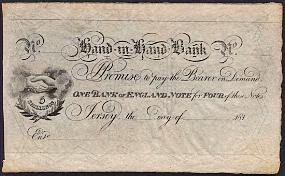 No Hand-in-Hand Bank No
I Promise to pay the Bearer on Demand
ONE BANK of ENGLAND NOTE for FOUR of these Notes
5
Jersey the Day of 181
Entd.